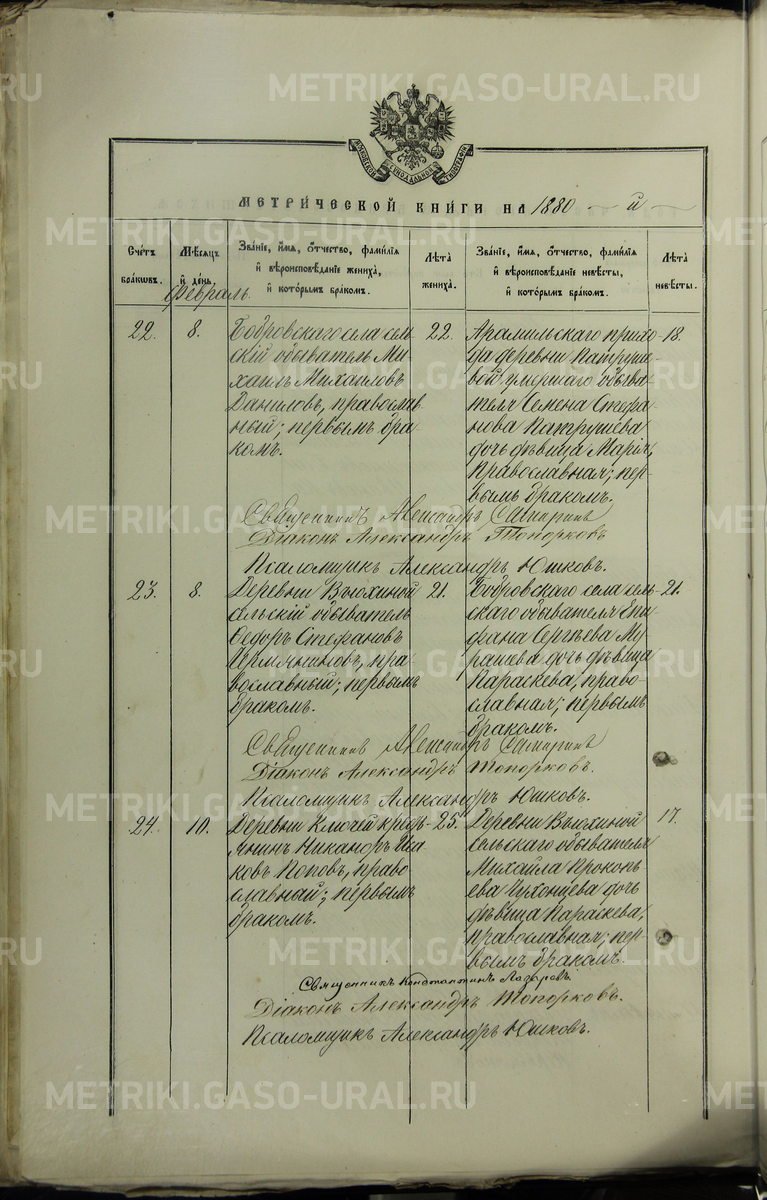 МЕТРИЧЕСКОЙ КНИГИ НА 1880 й
Счетъ браковъ.
Мѣсяцъ и день.
Званіе, имя, отчество, фамилія и вѣроисповѣданіе жениха, и которымъ бракомъ.
Лѣта жениха.
Званіе, имя, отчество, фамилія и вѣроисповѣданіе невѣсты, и которымъ бракомъ.
Лѣта невѣсты.
Февраль.
22.
8.
Бобровскаго села сель-
скій обыватель Ми-
хаилъ Михаиловъ
Даниловъ, православ-
ный; первымъ бра-
комъ.
22.
Арамильскаго прихо-
да деревни Патруше-
вой умершаго обыва-
теля Семена Стефа-
нова Патрушева
дочь дѣвица Марія,
Православная; пер-
вымъ бракомъ.
18.
Священникъ Александръ
Діаконъ Александръ Топорковъ
Псаломщикъ Александръ Юшковъ.
23.
8.
Деревни Вьюхиной
сельскій обыватель
Ѳедоръ Стефановъ
пра-
вославный; первымъ
бракомъ.
21.
Бобровскаго села сель-
скаго обывателя Епи-
фана Сергѣева Му-
рашева дочь дѣвица
Параскева, право-
славная; первымъ
бракомъ.
21.
Священникъ Александръ
Діаконъ Александръ Топорковъ.
Псаломщикъ Александръ Юшковъ.
24.
10.
Деревни Ключей кресть-
янинъ Никандръ Яковлевъ Поповъ, право-
славный; первымъ
бракомъ.
25.
Деревни Вьюхиной
сельскаго обывателя
Михайла Прокопь-
ева Чухонцева дочь
дѣвица Параскева,
православная; пер-
вымъ бракомъ.
17.
Священникъ Константинъ Лазаревъ.
Діаконъ Александръ Топорковъ.
Псаломщикъ Александръ Юшковъ.
METRIKI.GASO-URAL.RU